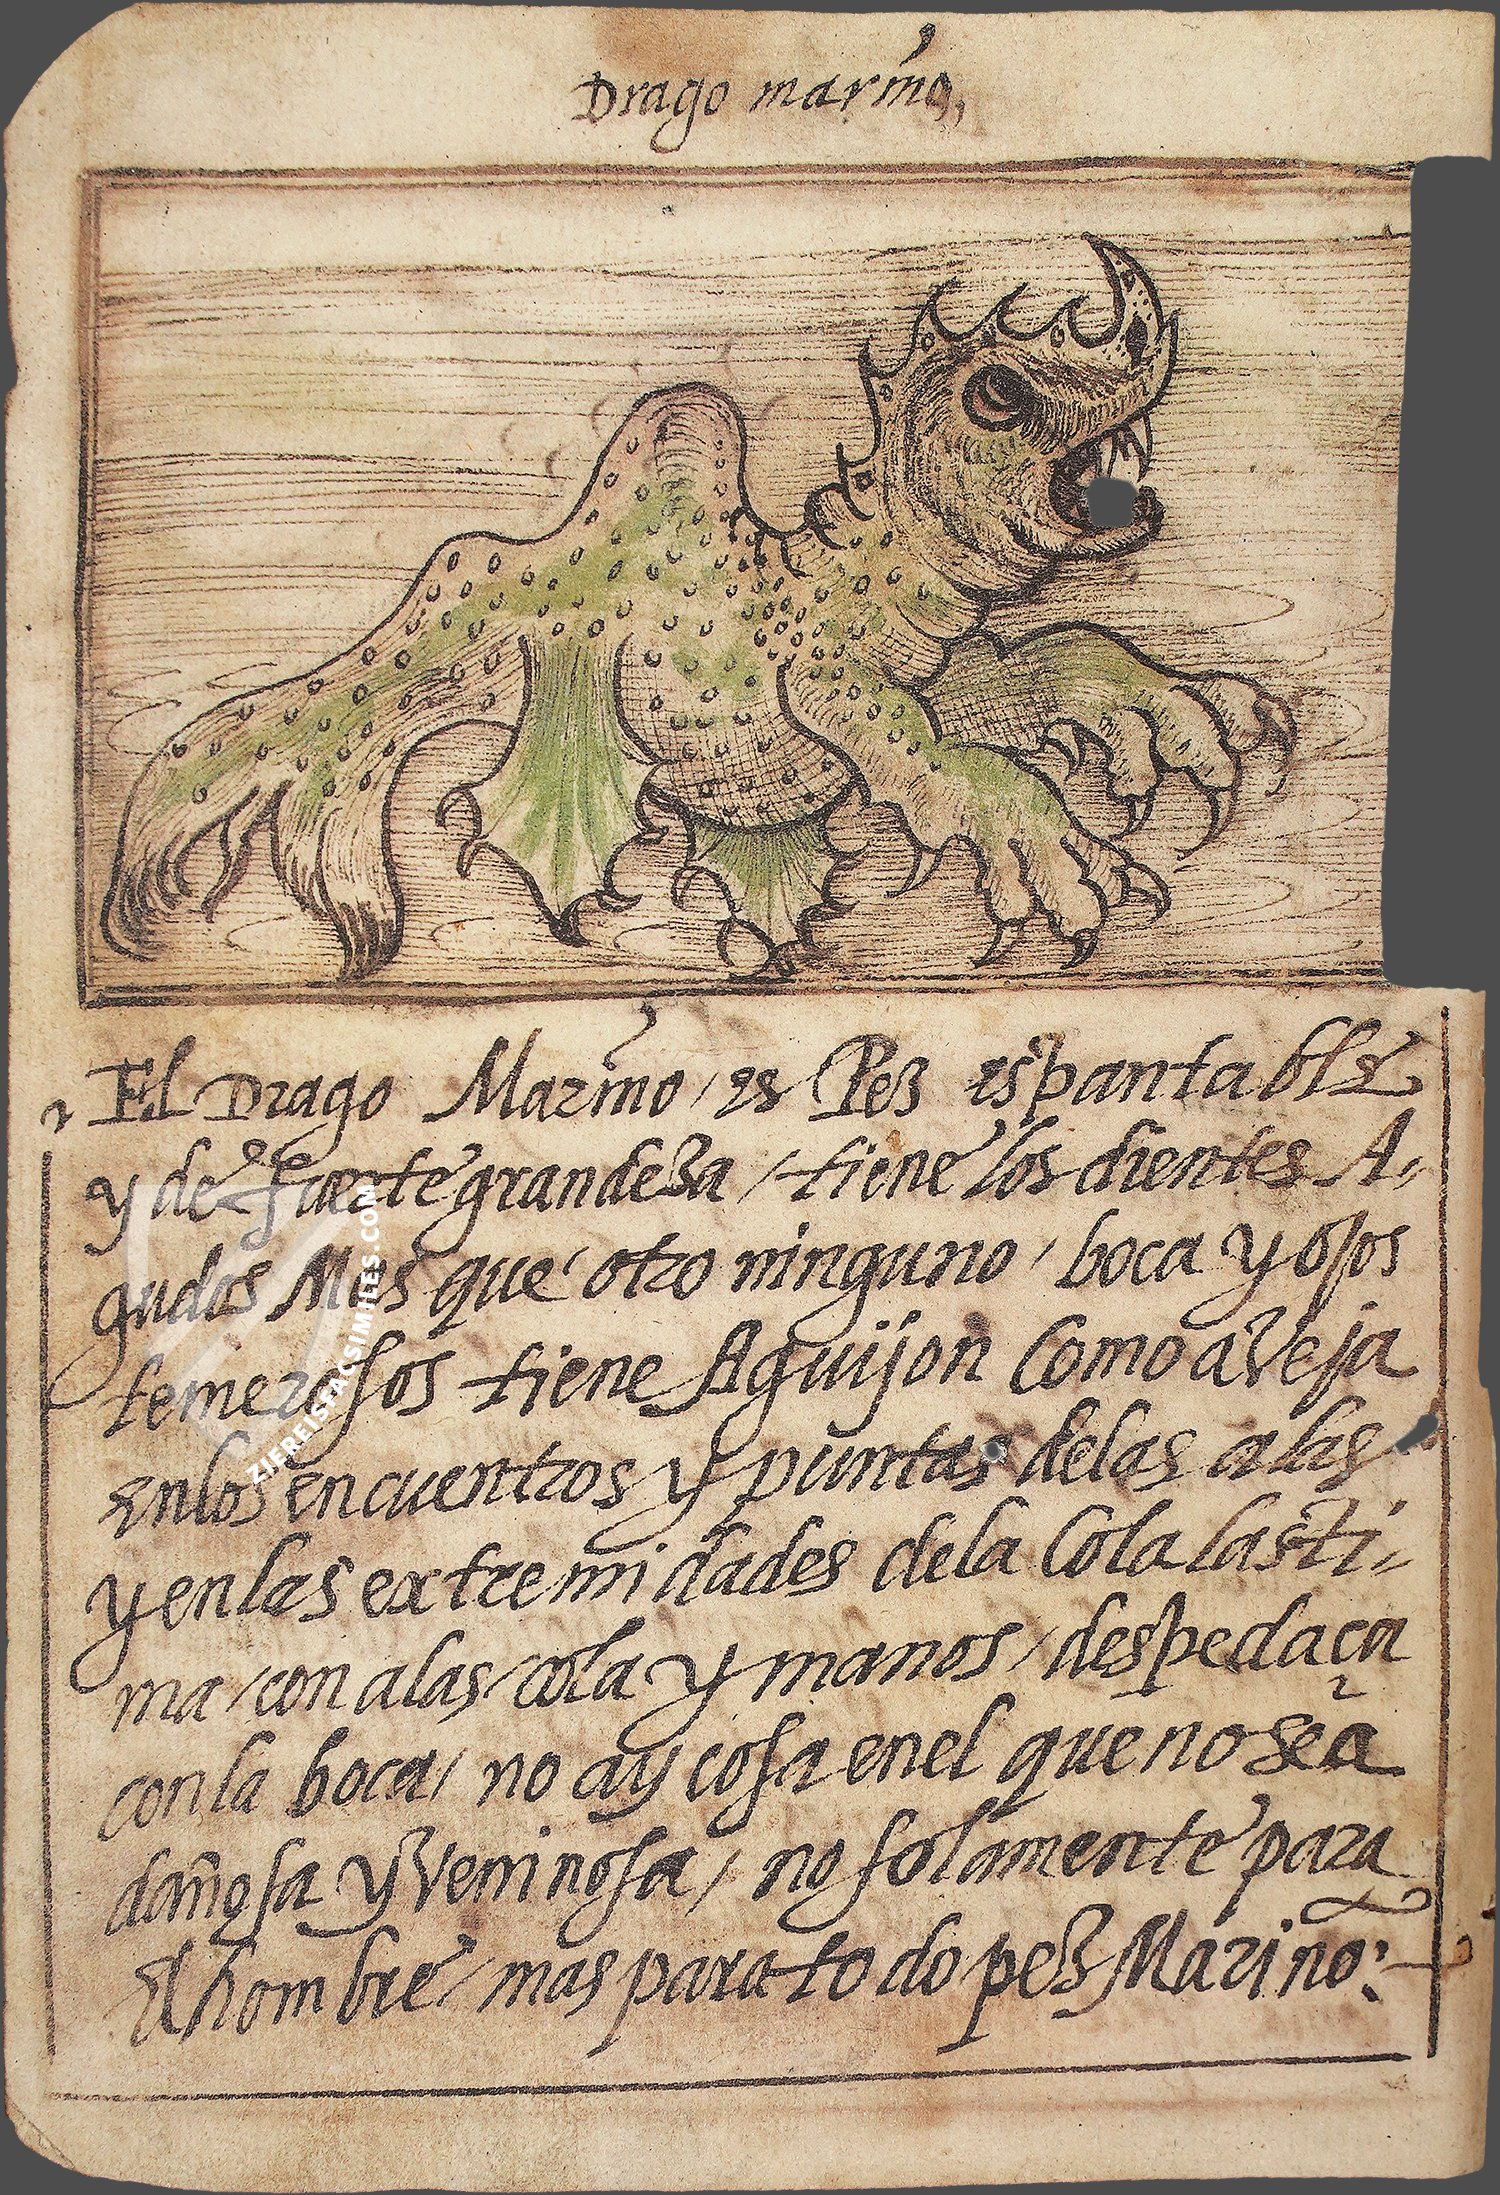 Drago marino,
El Drago Marino / es Pez espantable
y de fuerte grandeza / tiene los dientes A-
gudos Mas que otro ninguno / boca y ojos
temerosos tiene Aguijon Como aveja
enlos encuentros y puntas delas alas
y enlas extremidades dela Cola lasti-
ma / con alas / cola y manos / despedaça
conla boca / no ay cosa enel que no sea
dañosa y Veninosa / no solamente para
El hombre / mas para todo pez Marino:
ZIEREISFACSIMILES.COM